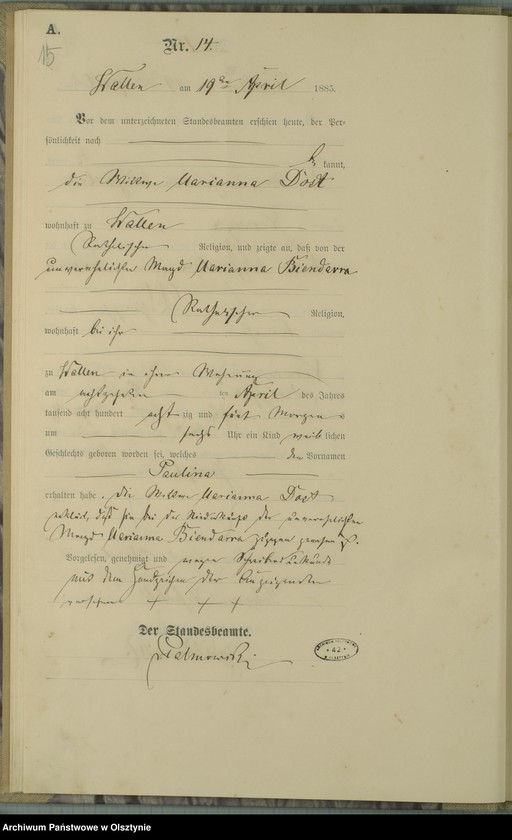 A.
15
Nr. 14.
Wallen am 19ten April 1885.
Vor dem unterzeichneten Standesbeamten erschien heute, der Per-
sönlichkeit nach
be kannt,
die Wittwe Marianna Dost
wohnhaft zu Wallen
Katholischer Religion, und zeigte an, daß von der
unverehelichten Magd Marianna Biendarra
Katholischer Religion,
wohnhaft bei ihr
zu Wallen in ihrer Wohnung
am achtzehnten April des Jahres
tausend acht hundert acht zig und fünf Morgens
um sechs Uhr ein Kind weib lichen
Geschlechts geboren worden sei, welches den Vornamen
Paulina
erhalten habe. Die Wittwe Marianna Dost
erklärt, daß sie bei der Niederkunft der unverehelichten
Magd Marianna Biendarra zugegen gewesen sei.
Vorgelesen, genehmigt und wegen Schreibens Unkunde
mit dem Handzeichen der Anzeigenden
versehen + + +
Der Standesbeamte.
42
Archiwum Państwowe w Olsztynie